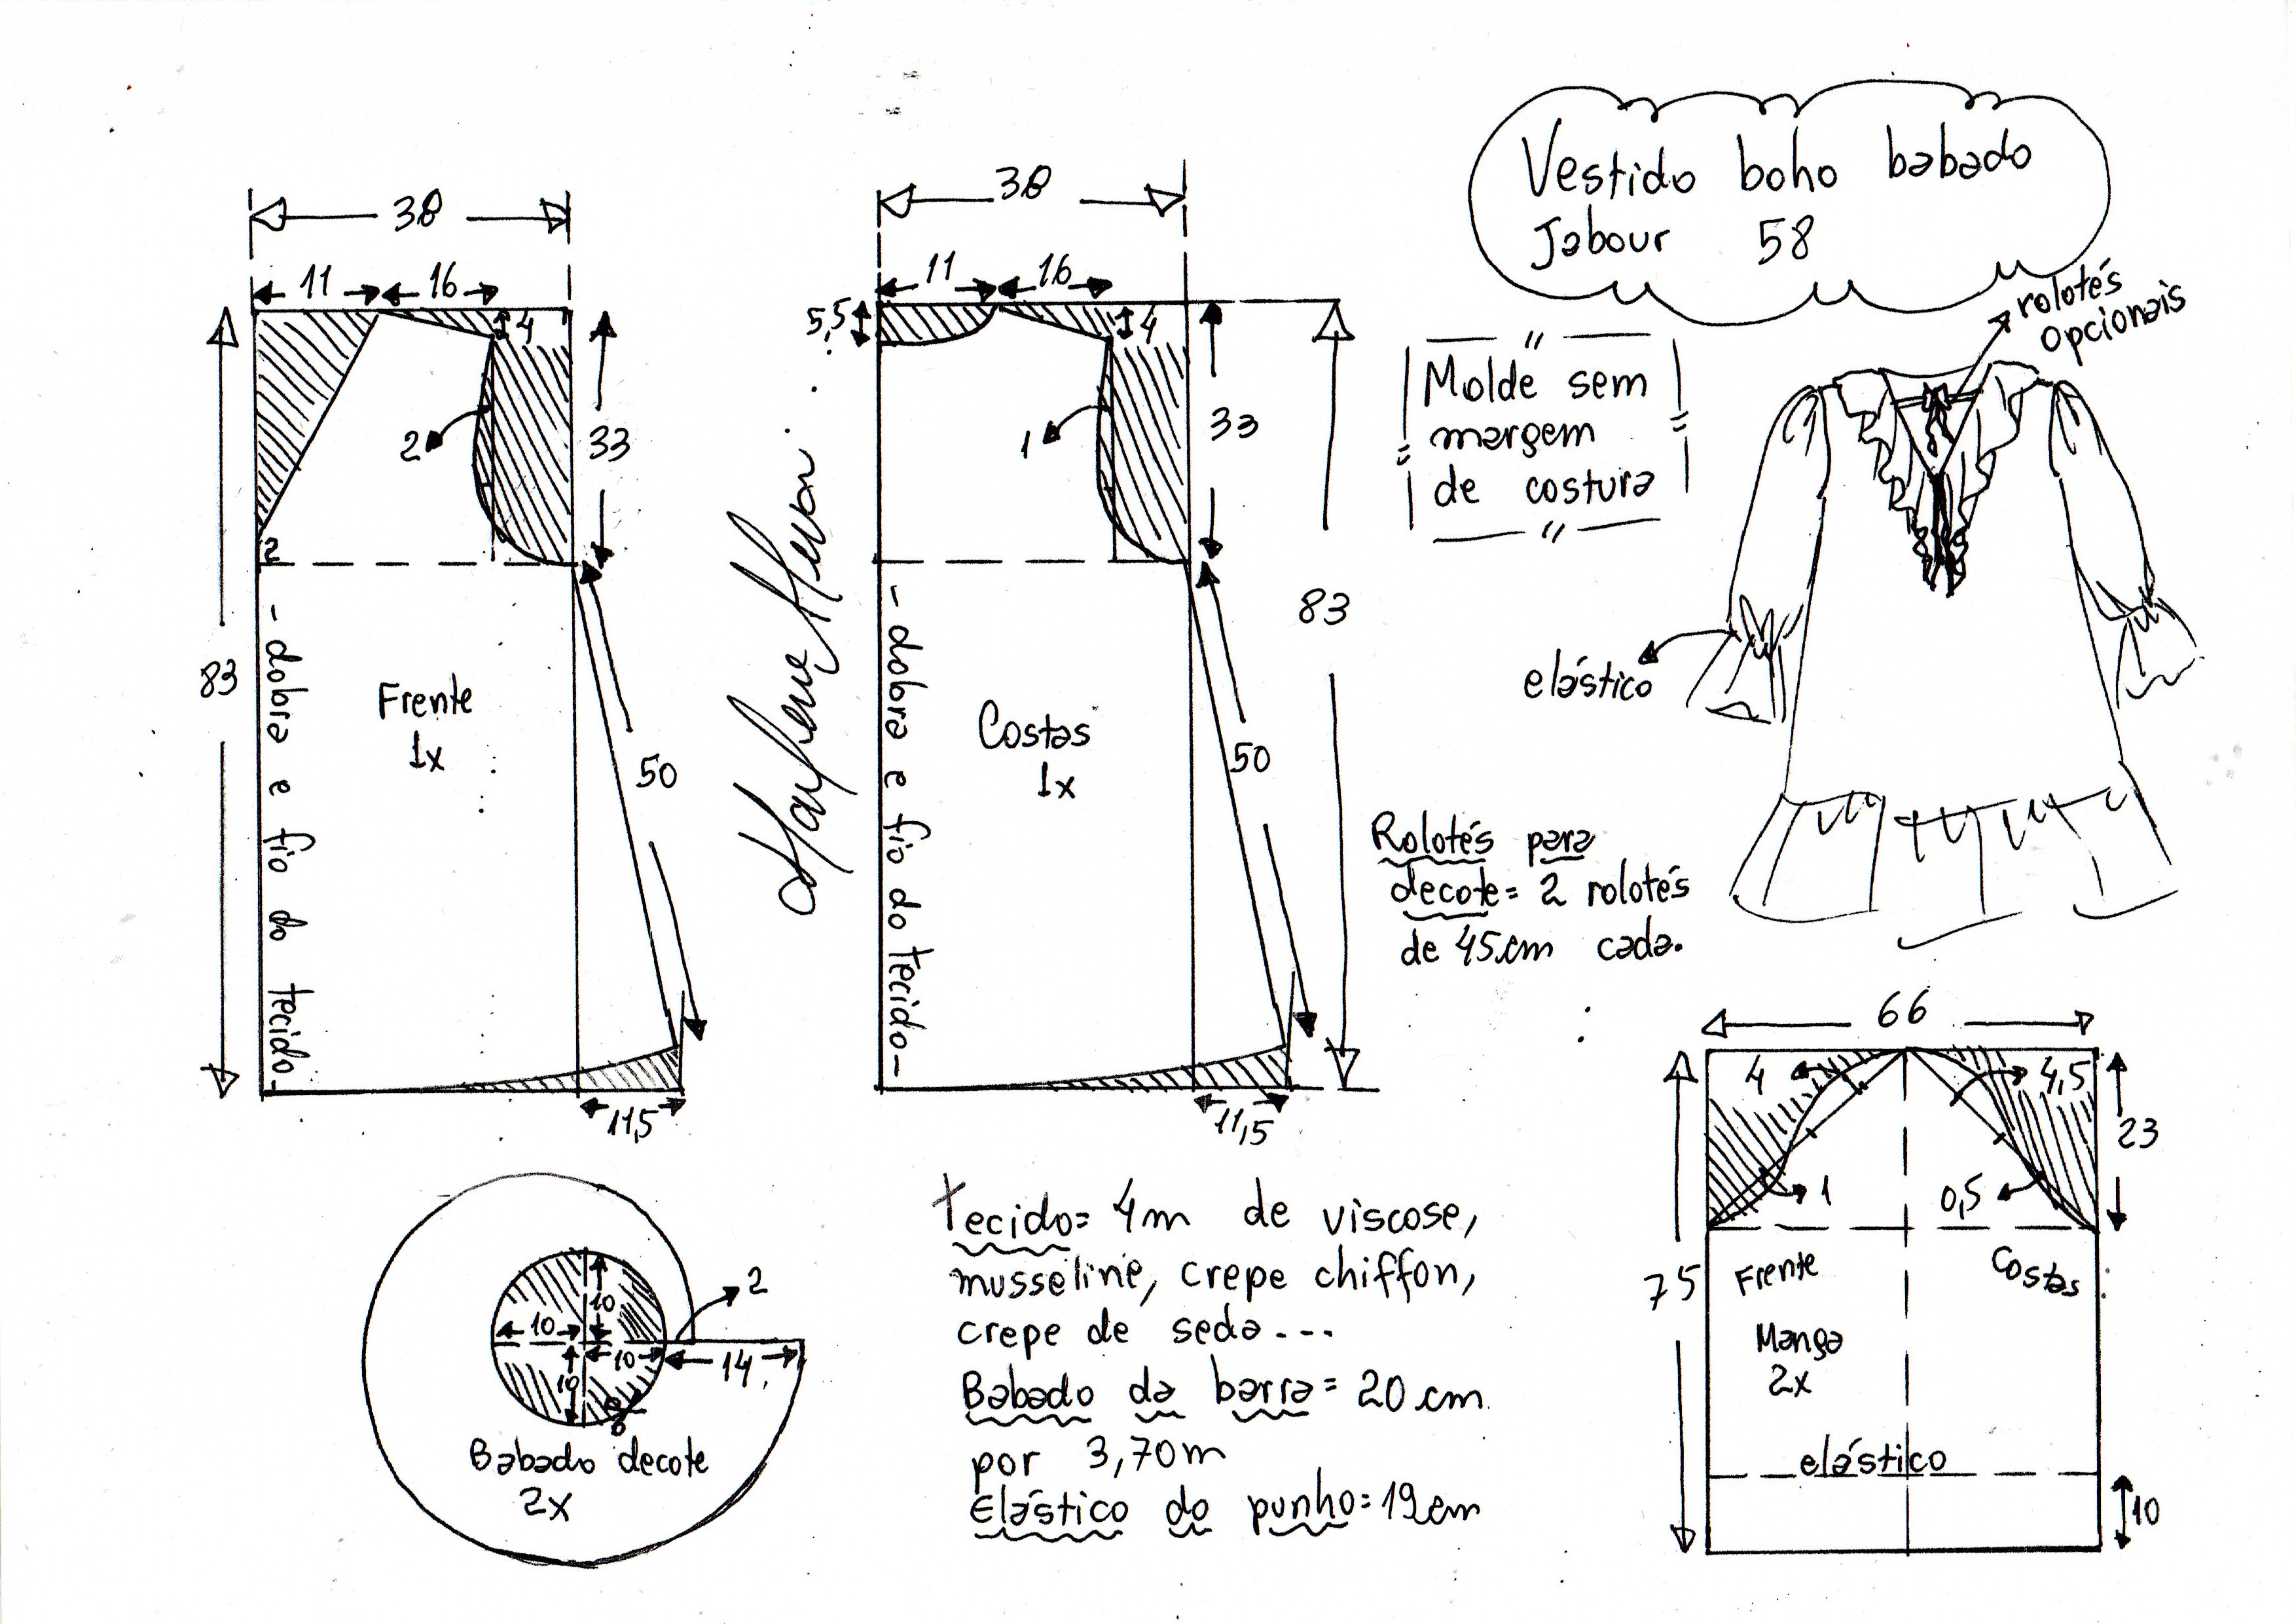 Vestido boho babado
Jabour 58
rolotés
opcionais
Molde sem
margem
de costura
elástico
38
11
16
4
2
33
2
83
50
Frente
1x
- dobra e fio do tecido -
11,5
38
11
16
5,5
4
1
33
83
50
Costas
1x
- dobra e fio do tecido -
11,5
Rolotés para
decote = 2 rolotés
de 45cm cada.
66
4
4,5
23
1
0,5
75
Frente
Costas
Manga
2x
elástico
10
2
10
10
10
10
14
Babado decote
2x
Tecido = 4m de viscose,
musseline, crepe chiffon,
crepe de seda...
Babado da barra = 20 cm
por 3,70m
Elástico do punho = 19cm